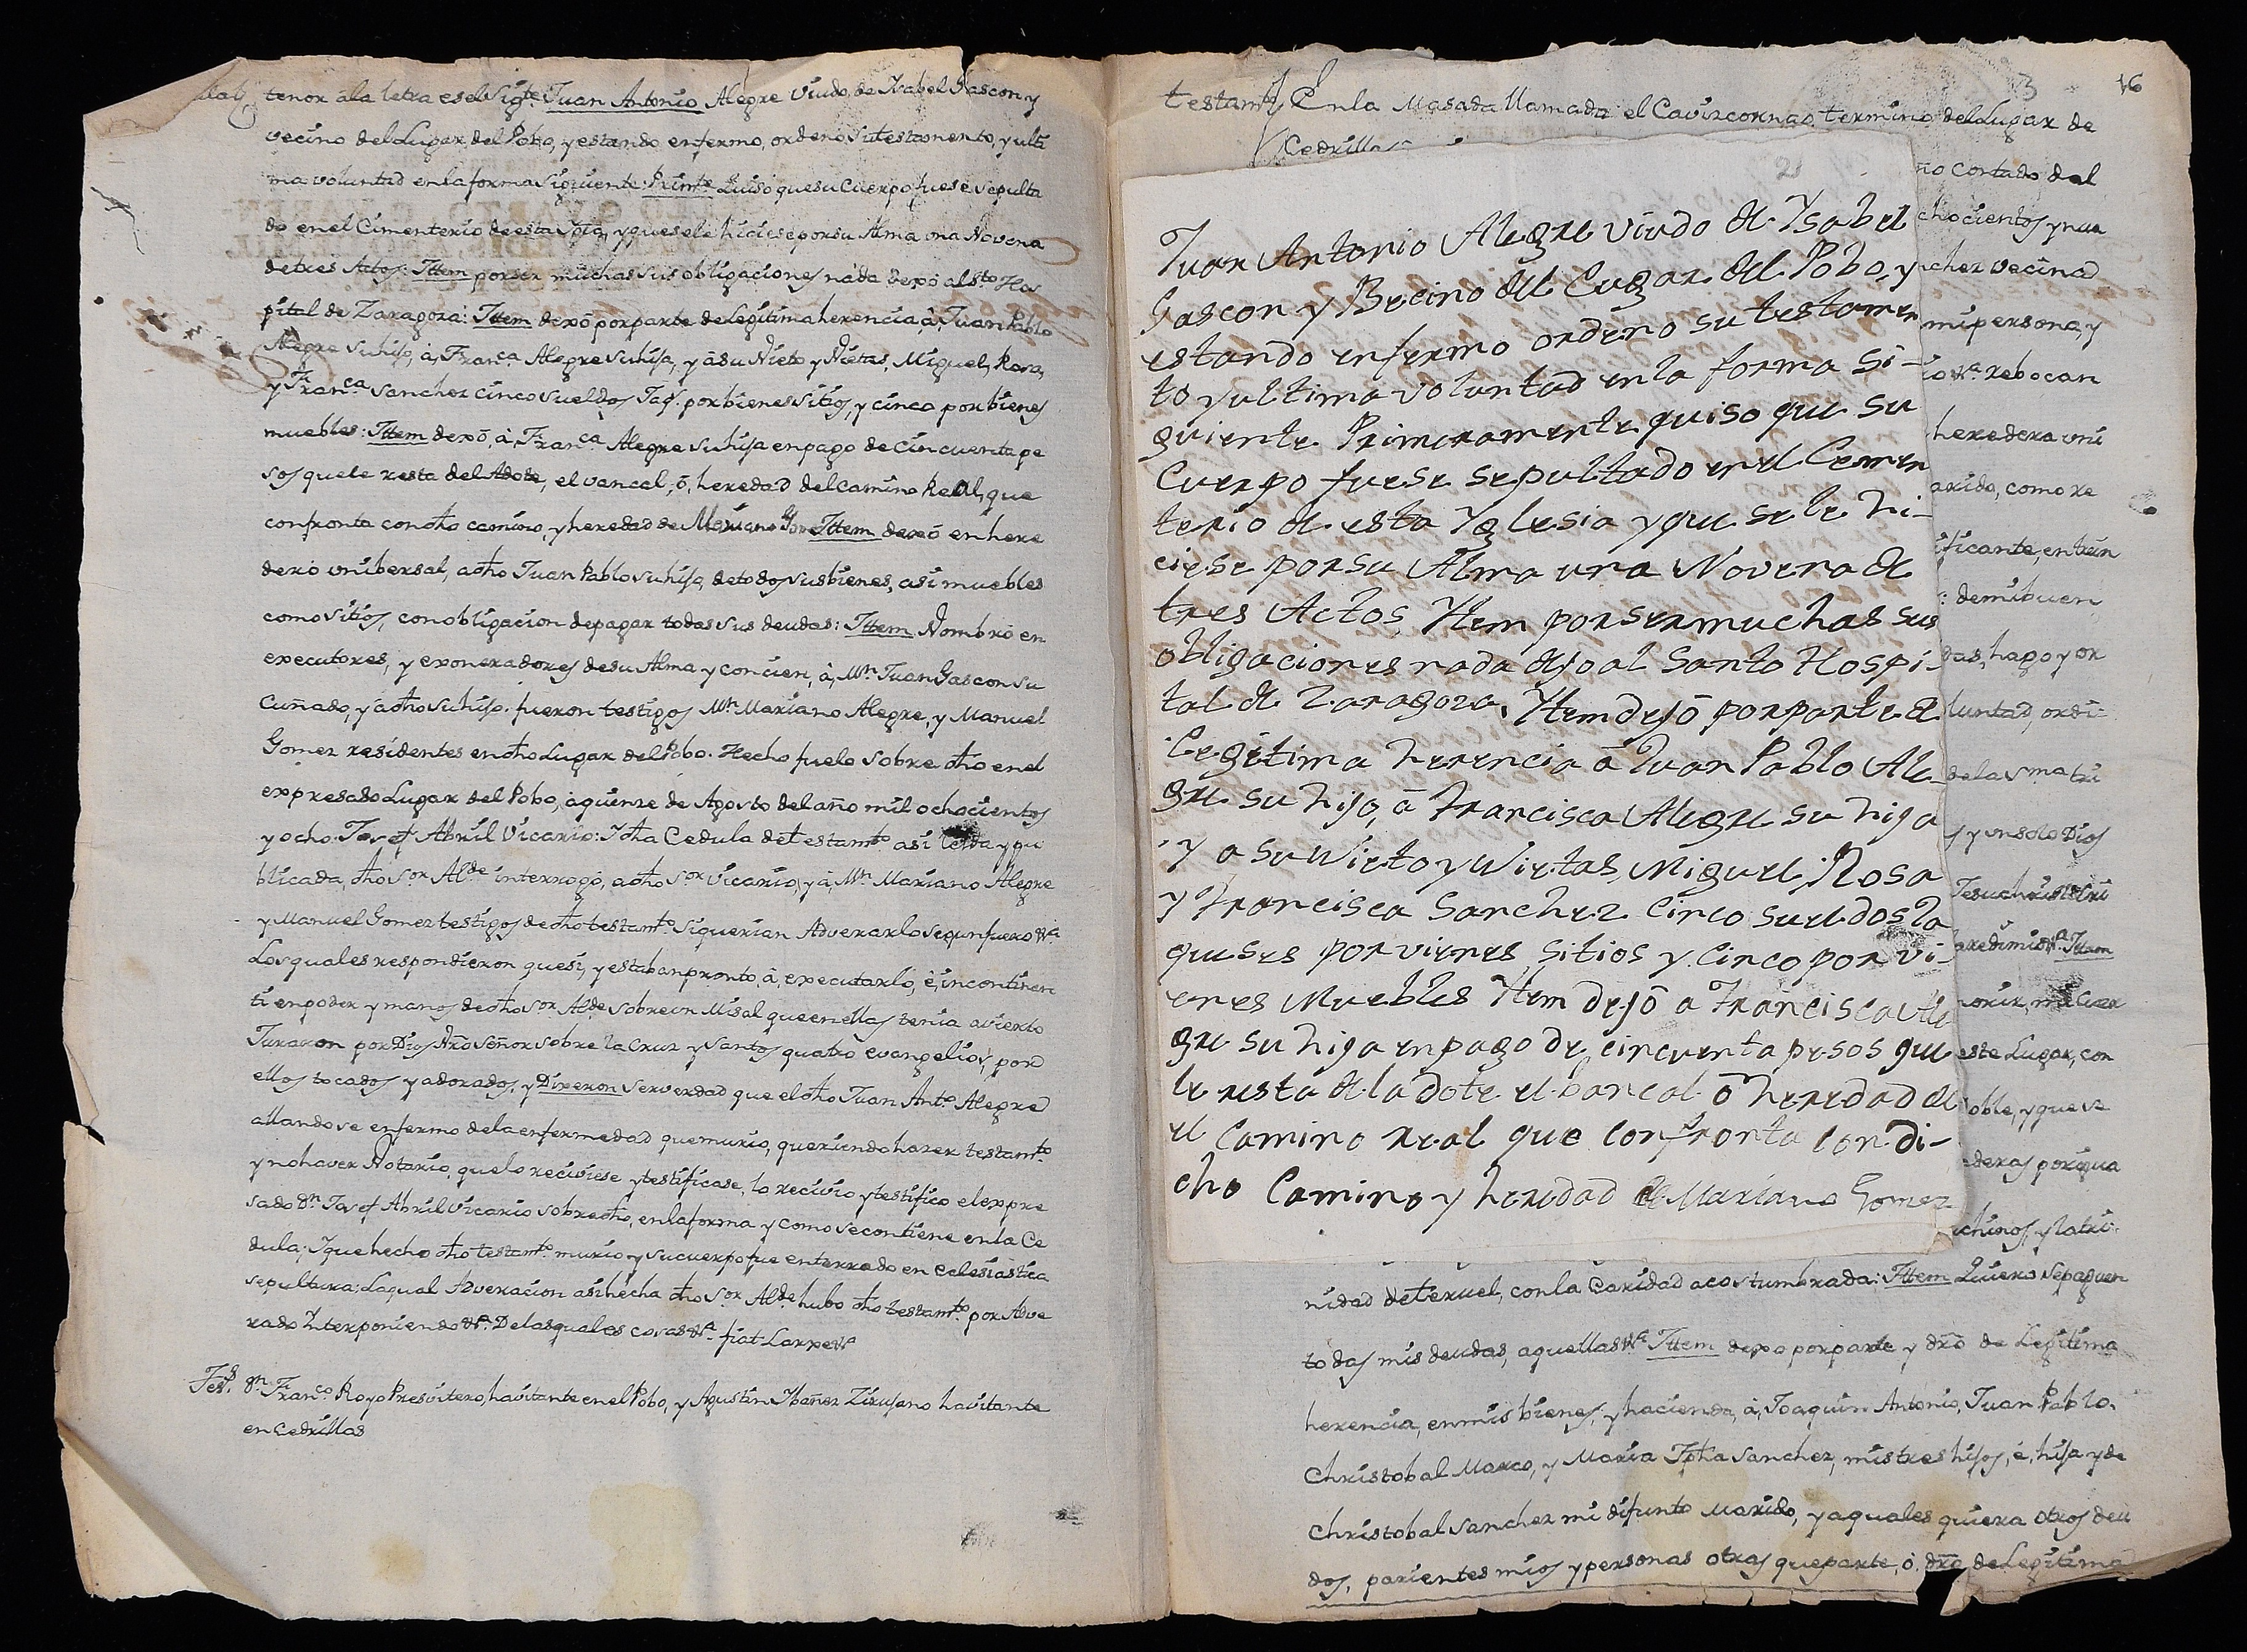 tenor ála letra es el Sigte. Juan Antonio Alegre viudo de Ysabel Gascon y
vecino del Lugar del Pobo, y estando enfermo, ordenó su testamento, y ulti
ma voluntad en la forma siguiente: Primte. Quiso que su Cuerpo fuese sepulta
do en el Cimenterio de esta Ygla, y que sele hiciese por su Alma una Novena
de tres Actos: Ittem por ser muchas sus obligaciones nada dexó al Sto Hos
pital de Zaragoza: Ittem dexó por parte de Legitima herencia à, Juan Pablo
Alegre su hijo, à, Franca. Alegre su hija, y à su Nieto y Nietas, Miguel, Rosa,
y Franca Sanchez cinco sueldos Jaqs. por bienes sitios, y cinco por bienes
muebles: Ittem dexó, à, Franca Alegre su hija en pago de cincuenta pe
sos que le resta del Adote, el vancal, ó, heredad del camino Real, que
confronta con dho camino, y heredad de Mariano Gomez Ittem dexó en here
dero unibersal, a dho Juan Pablo su hijo, de todos sus bienes, asi muebles
como sitios, con obligacion de pagar todas sus deudas: Ittem Nombró en
executores, y exoneradores de su Alma y concien, à, Mn Juan Gascon su
Cuñado, y a dho su hijo. fueron testigos Mn Mariano Alegre, y Manuel
Gomez residentes en dho Lugar del Pobo. Hecho fue lo sobre dho en el
expresado Lugar del Pobo, à quinze de Agosto del año mil ochocientos
y ocho. Josef Abril Vicario: Y dha Cedula de testamto asi leida y pu
blicada, dho Sor Alde interrogó, a dho Sor Vicario, y à, Mn Mariano Alegre
y Manuel Gomez testigos de dho testamto si querian Adverarlo segun fuero &a
Los quales respondieron que si, y estaban pronto, à, executarlo, è, incontinen
ti en poder y manos de dho Sor Alde sobre un Misal que en ellas tenia avierto
Juraron por Dios Nro Señor sobre la Cruz y Santos quatro evangelios, por
ellos tocados y adorados, y Dixeron ser verdad que el dho Juan Anto. Alegre
allandose enfermo de la enfermedad que murio, queriendo hazer testamto
y no haver Notario, que lo reciviese y testificase, lo recivio y testifico el expre
sado Dn Josef Abril Vicario sobre dho, en la forma y como se contiene en la Ce
dula; Y que hecho dho testamto murio y su cuerpo fue enterrado en eclesiastica
sepultura: La qual Adveracion asi hecha dho Sor Alde hubo dho testamto. por Adve
rado Interponiendo &a. De las quales cosas &a. fiat Large &a
Tes. Dn Franco Royo Presvitero, havitante en el Pobo, y Agustin Ybañez Zirujano havitante
en Cedrillas
3 16
testamto En la Masada llamada el Cavizcornao termino del Lugar de
Cedrillas
ño Contado del
chocientos y nue
chez vecina
mi persona, y
&a. rebocan
heredera uni
arido, como re
ificante, en tiem
: de mi buen
das, hago y or
luntad, ordi
de la Sma tri
s y un solo Dios
Jesuchristo
redimio &a. Ittem
morir, mi Cuer
este Lugar, con
oble, y que se
ederas por qua
chinos y latri
2
Juan Antonio Alegre viudo de Ysabel
Gascon y Becino del Lugar del Pobo, y
estando enfermo ordeno su testamen
to y ultima voluntad en la forma si-
guiente Primeramente quiso que su
Cuerpo fuese sepultado en el Cemen
terio de esta Yglesia y que se le hi-
ciese por su Alma una Novena de
tres Actos, Ytem por ser muchas sus
obligaciones nada dejo al Santo Hospi-
tal de Zaragoza, Ytem dejó por parte de
Legitima herencia á Juan Pablo Ale-
gre su hijo, á Francisca Alegre su hija
y a su Nieto y Nietas, Miguel, Rosa
y Francisca Sanchez Cinco sueldos Ja
queses por vienes sitios y Cinco por vi-
enes Muebles Ytem dejó a Francisca Ale
gre su hija en pago de cincuenta pesos que
le resta de la dote el bancal ó heredad de
el Camino real que confronta con di-
cho Camino y heredad de Mariano Gomez
nidad de Teruel, con la Caridad acostumbrada: Ittem Quiero se paguen
todas mis deudas, aquellas &a Ittem dexo por parte y dro de Legitima
herencia, en mis bienes, y hacienda, à, Joaquin Antonio, Juan Pablo,
Christobal Marco, y Maria Jpha Sanchez, mis tres hijos, é, hija y de
Christobal Sanchez mi difunto Marido, y a quales quiera otros deu
dos, parientes mios y personas otras que parte, ó, dro de Legitima